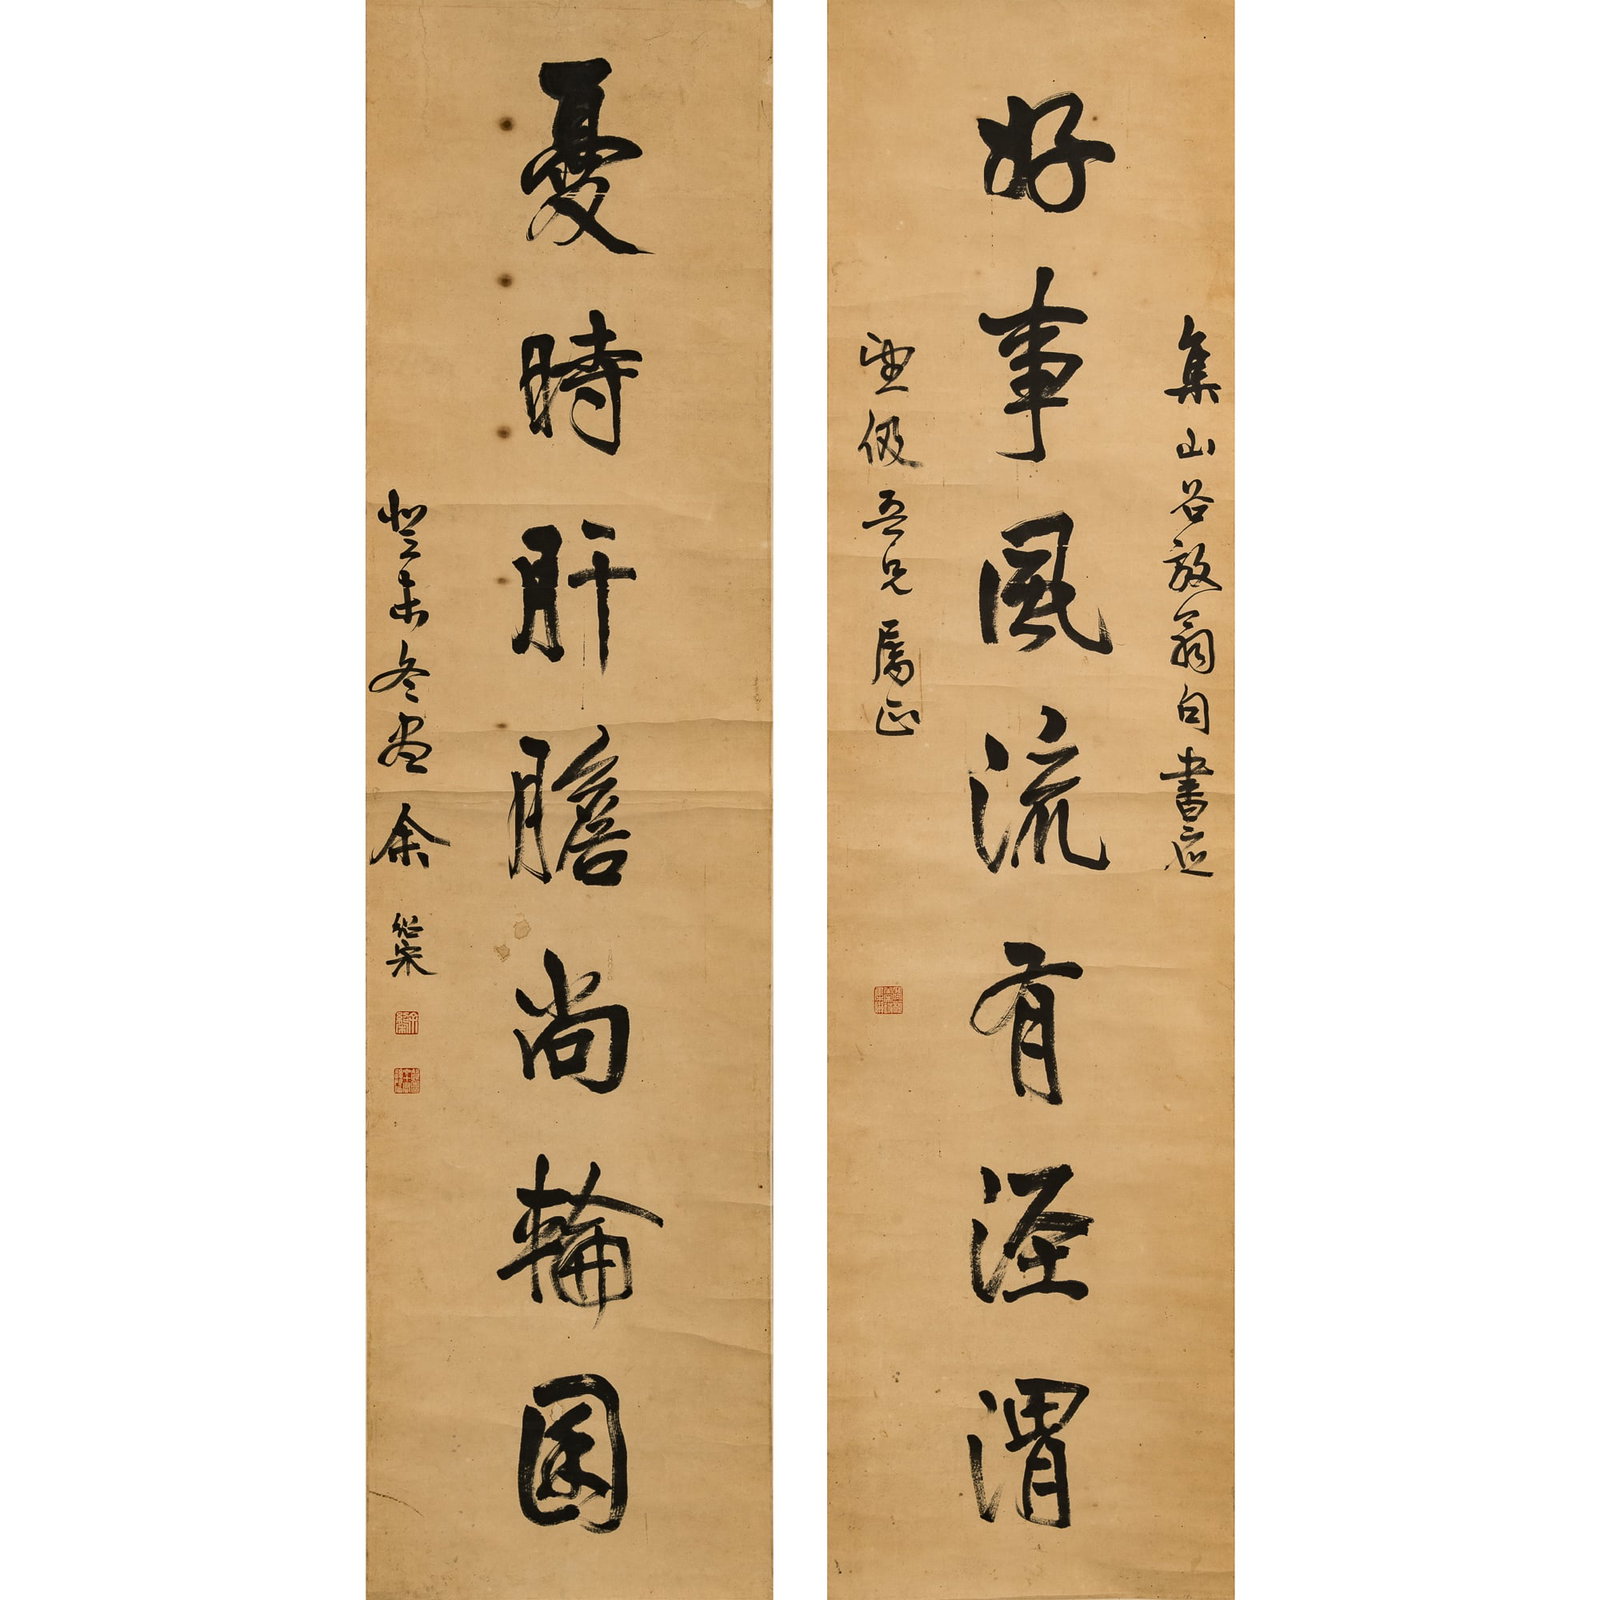 集山谷放翁句書應
好事風流有涇渭
吾兄屬正
憂時肝膽尚輪囷
癸未冬盡余紹宋